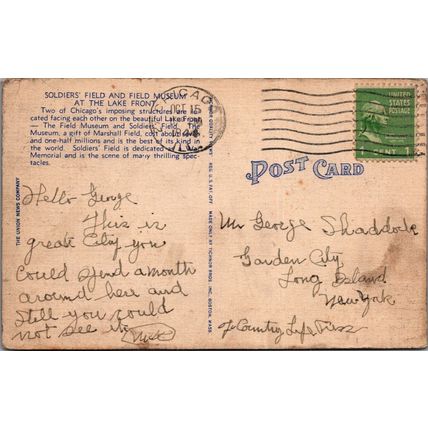 SOLDIERS' FIELD AND FIELD MUSEUM
AT THE LAKE FRONT
Two of Chicago's imposing structures are lo-
cated facing each other on the beautiful Lake Front
— The Field Museum and Soldiers' Field. The
Museum, a gift of Marshall Field, cost about seven
and one-half millions and is the best of its kind in
the world. Soldiers' Field is dedicated as a
Memorial and is the scene of many thrilling spec-
tacles.
CHICAGO
OCT 15
ILL.
UNITED
STATES
POSTAGE
1 CENT 1
POST CARD
THE UNION NEWS COMPANY
REG. U.S. PAT. OFF. MADE ONLY BY TICHNOR BROS. INC., BOSTON, MASS.
Hello George
This is
great City you
Could spend a month
around hear and
still you could
not see it
Mr George Shaddock
Garden City
Long Island
New York
c/o Country Life Press